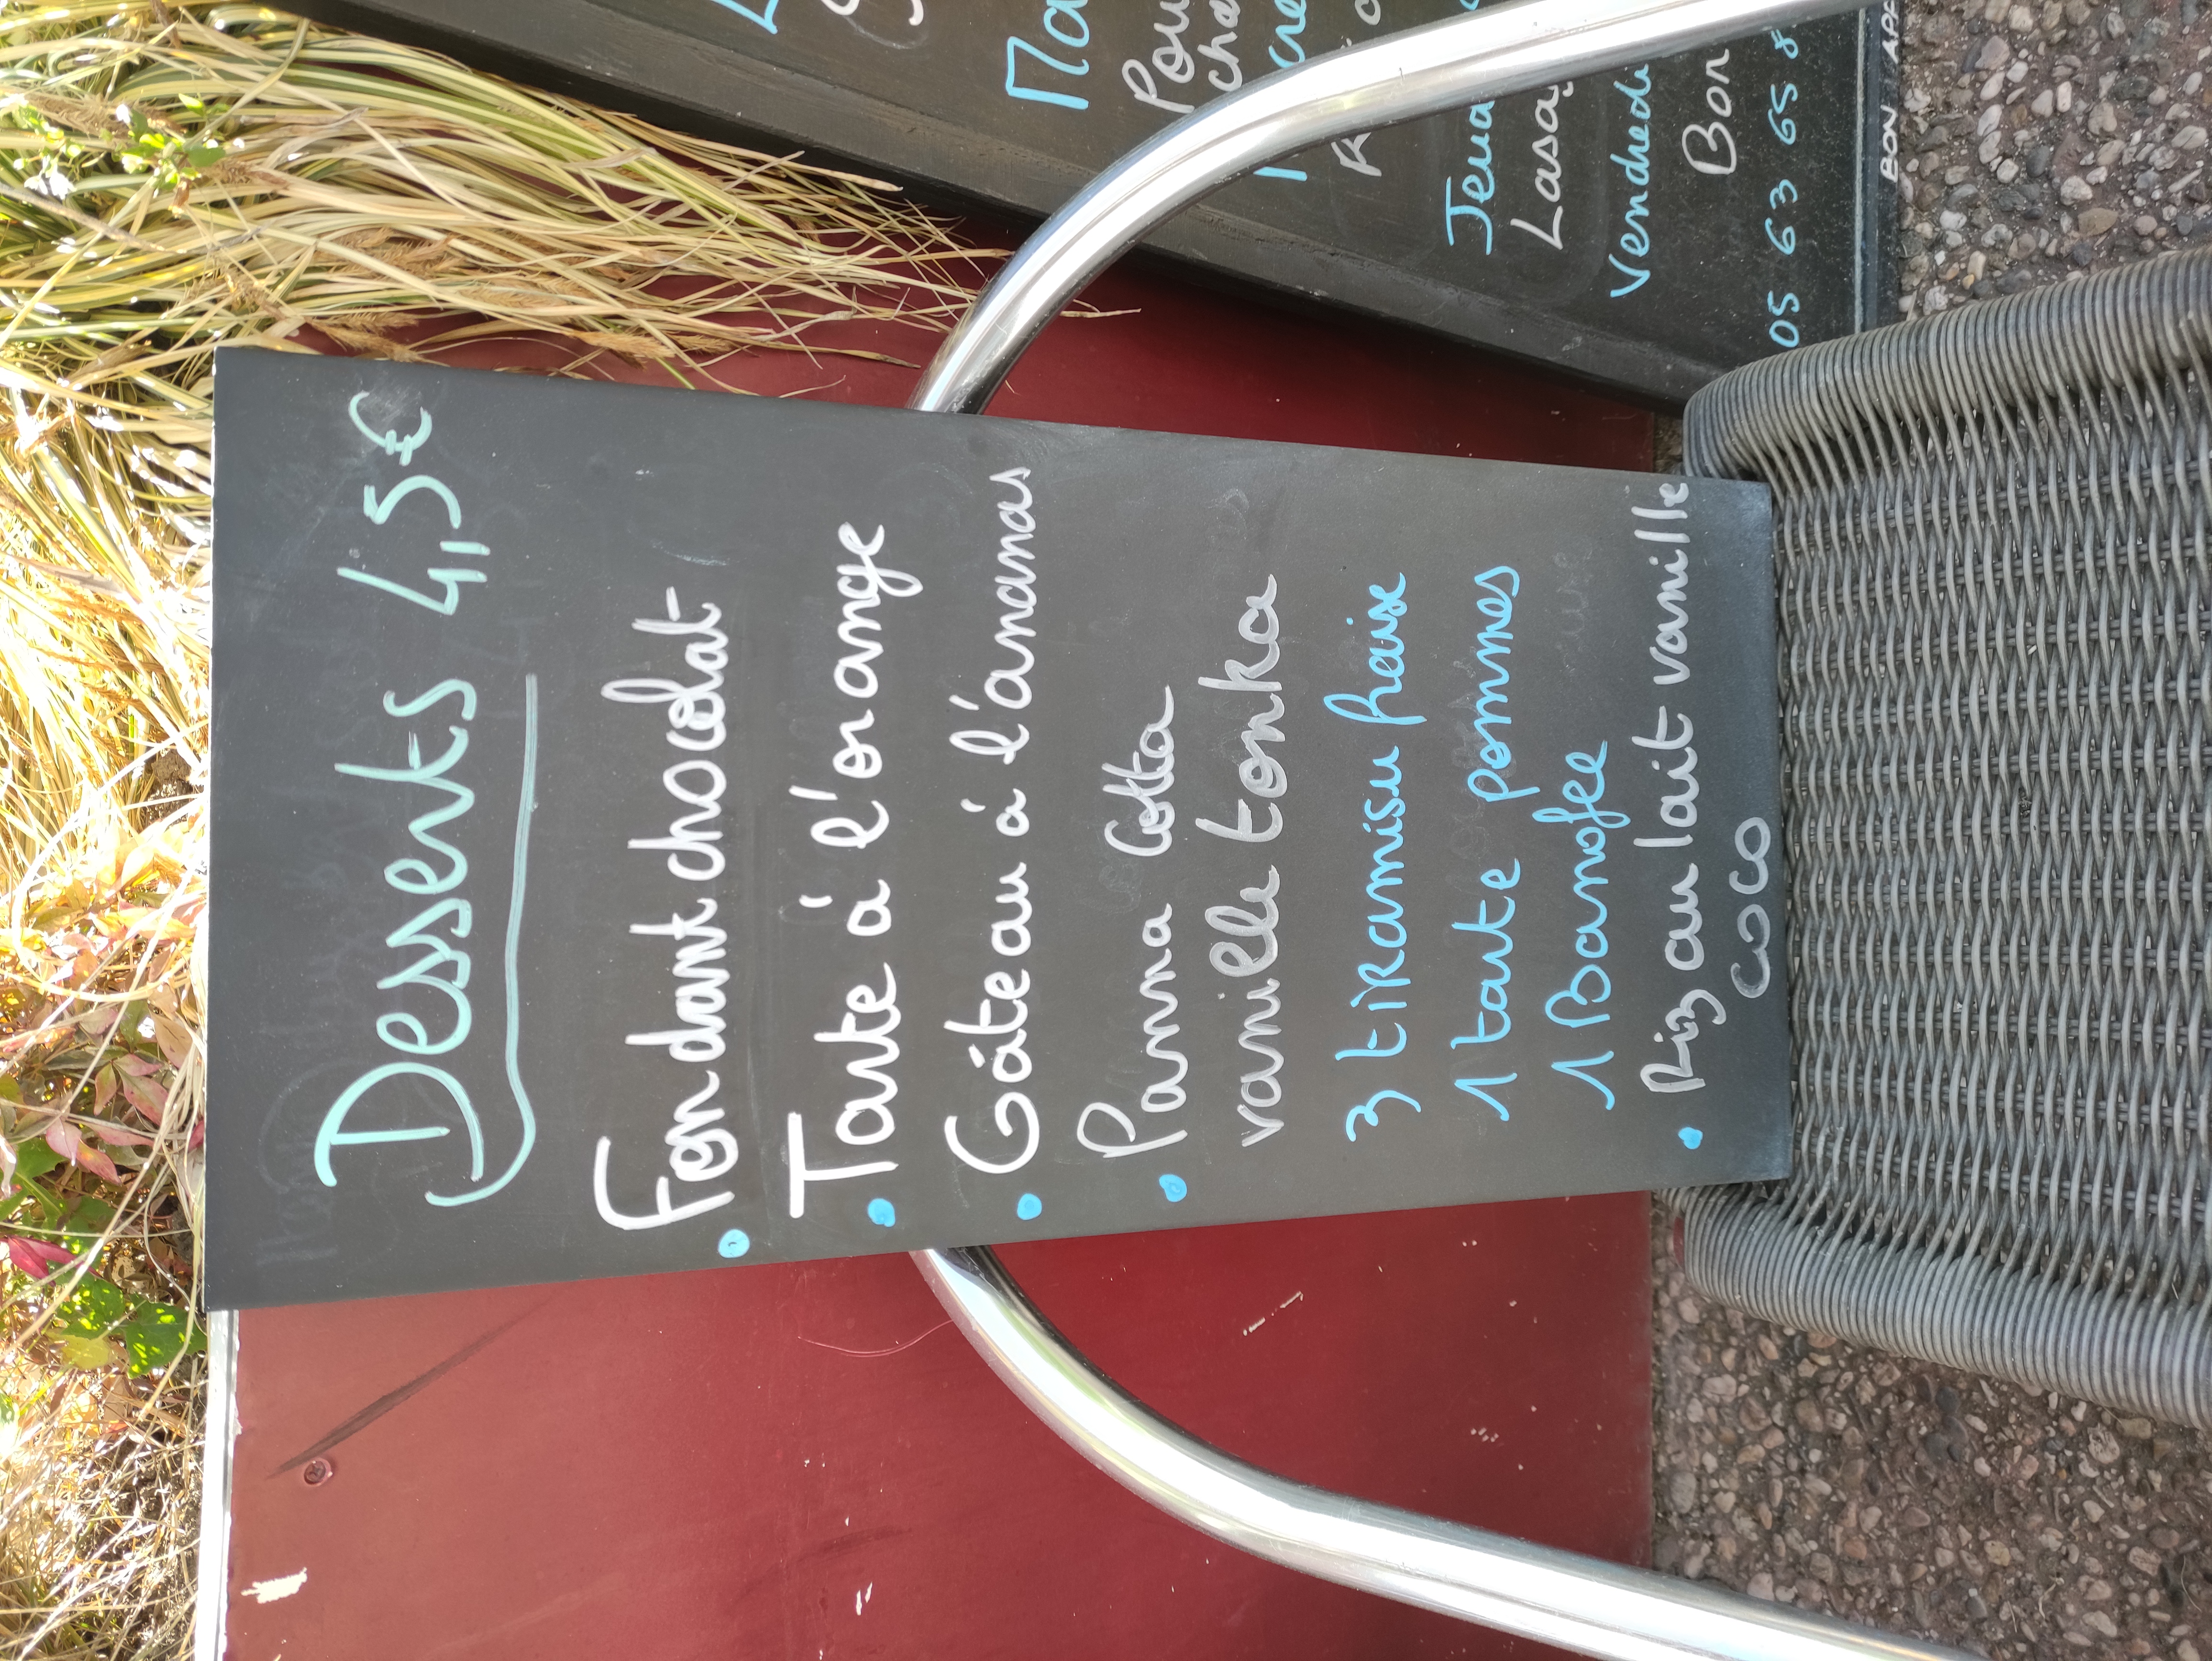 Desserts 4,5€
Fondant chocolat
Tarte à l'orange
Gâteau à l'ananas
Panna Cotta
vanille tonka
3 tiramisu fraise
1 tarte pommes
1 Banofee
Riz au lait vanille
coco
Ma
Pou
cha
cre
Lasa
Vendredi
Bon
05 63 65 8
BON APP